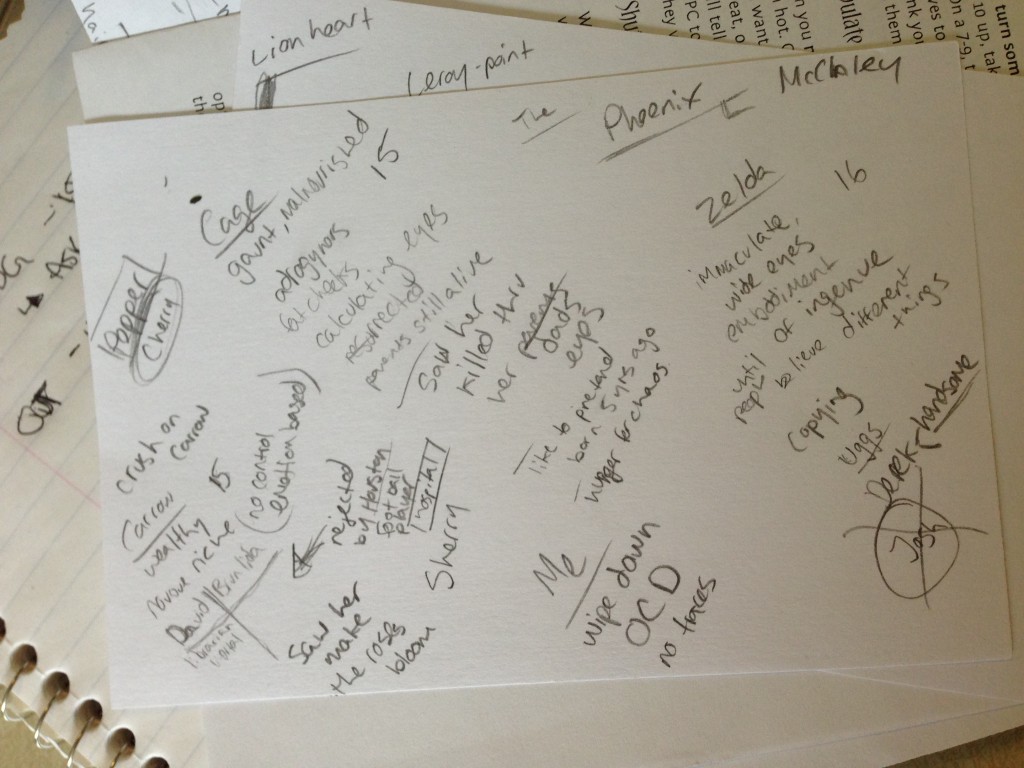 Lionheart
Leroy-point
The
Phoenix
McCloley
Cherry
Cage
15
gaunt, malnourished
adrogynous
fat cheeks
calculative eyes
resurrected
parents still alive
Saw her
killed thru
her
dads
eyes
- like to pretend
born 5 yrs ago
- hunger for chaos
Zelda
16
immaculate,
wide eyes
embodiment
of ingenue
until
people
believe different
things
Copying
uggs
Derek
handsome
Josh
crush on
carrow
Carrow
15
wealthy
nouve riche
(no control
emotion based)
David/Brinlda
rejected
by Harston
football
player
hospital
Sherry
Saw her
make
the roses
bloom
Me
wipe down
OCD
no traces
turn som